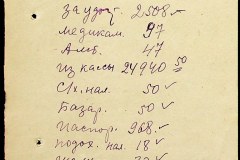 за удоч. 2508 ✓
медикам. 97
Амб. 47
Из кассы 24940 50
С/х. нал. 50 ✓
Базар. 50 ✓
Паспор. 968. ✓
подох. нал. 18 ✓